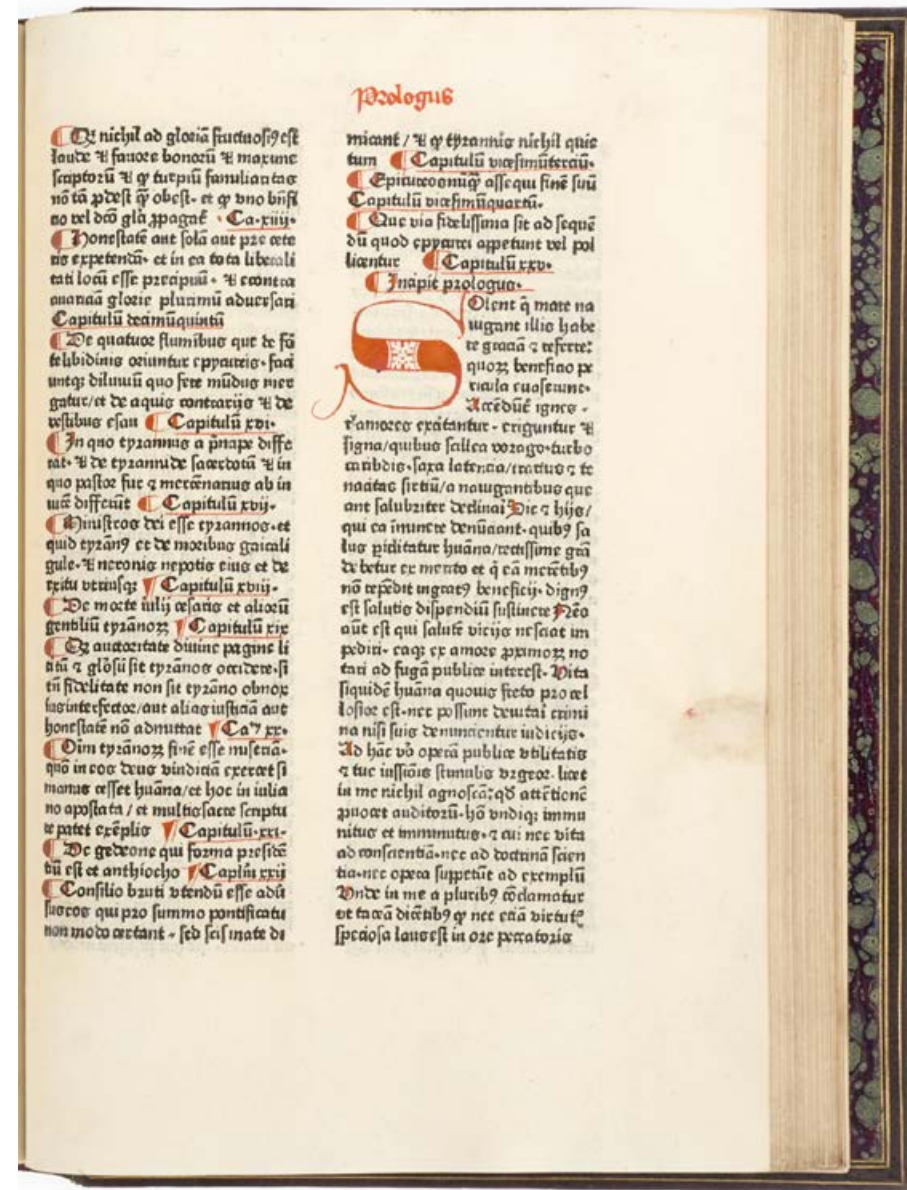 Prologus
Qꝫ nichil ad gloriā fructuosiꝯ est
laude ⁊ fauore bonorū ⁊ maxime
scriptorū ⁊ ꝙ turpiū familiaritas
nō tā ꝓdest q̄ obest. et ꝙ vno bn̄fi
no vel dcō gl̄a ꝓpagat̄ . Ca.xiiij.
Honestatē aut solā aut pre cete
ris expetendā. et in ea tota liberali
tati locū esse precipuū. ⁊ econtra
auariciā glorie plurimū aduersari
Capitulū decimūquintū
De quatuor fluminibus que de fō
te libidinis oriuntur epycureis. faci
untqꝫ diluuiū quo fere mūdus mer
gatur/et de aquis contrarijs ⁊ de
vestibus esau Capitulū xvi.
In quo tyrannus a p̄ncipe diffe
rat. ⁊ de tyrannide sacerdotū ⁊ in
quo pastor fur ⁊ mercēnarius ab in
uicē differūt Capitulū xvij.
Ministros dei esse tyrannos. et
quid tyrānꝯ et de moribus gaicali
gule. ⁊ neronis nepotis eius et de
exitu vtriusqꝫ Capitulū xviij.
De morte iulij cesaris et aliorū
gentiliū tyrānoꝝ Capitulū xix
Qꝫ auctoritate diuine pagine li
citū ⁊ glōsū sit tyrānos occidere. si
tn̄ fidelitate non sit tyrāno obnox
ius interfector/aut alias iusticiā aut
honestatē nō admittat Ca xx.
Oīm tyrānoꝝ finē esse miseriā.
quō in eos deus vindictā exercet si
manus cesset huāna/et hoc in iulia
no apostata/et multis sacre scriptu
re patet exēplis Capitulū.xxi.
De gedeone qui forma presidē
tiū est et anthiocho Caplm̄ xxij
Consilio bruti vtendū esse adū
sus eos qui pro summo pontificatu
non modo certant. sed scismate di
micant/⁊ ꝙ tyrannis nichil quie
tum Capitulū vicesimūterciū.
Epicureos nūqꝫ assequi finē suū
Capitulū vicesimūquartū.
Que via fidelissima sit ad sequē
dū quod epycurei appetunt vel pol
licentur Capitulū xxv.
Incipit prologus.
Solent q̄ mare na
uigant illis habe
re graciā ⁊ referre:
quoꝝ beneficio pe
ricula euaserunt.
Accēdūt̄ ignes.
clamores excitantur. eriguntur ⁊
signa/quibus scillea vorago. turbo
caribdis. saxa latencia/tractus ⁊ te
nacitas sirtiū/a nauigantibus que
ant salubriter declinai Sic ⁊ hijs/
qui ea īmunere denūciant. quibꝯ sa
lus p̄iditatur huāna/rectissime grā
debetur ex merito et q̄ eā merētibꝯ
nō repēdit ingratꝯ beneficij. dignꝯ
est salutis dispendiū sustinere Nēo
aūt est qui salutē vicijs nesciat im
pediri. eaqꝫ ex amore ꝓximoꝝ no
tari ad fugā publice interest. Vita
siquidē huāna quouis freto procel
losior est. nec possunt deuitai crimi
na nisi suis denuncientur iudicijs.
Ad hāc vō operā publice vtilitatis
⁊ tue iussiōis stimulis vrgeor. licet
in me nichil agnoscā: qd̄ attētionē
ꝓuocet auditorū. hō vndiqꝫ immu
nitus et imminutus. ⁊ cui nec vita
ad conscientiā. nec ad doctrinā scien
tia. nec opera suppetūt ad exemplū
Vnde in me a pluribꝯ cōclamatur
vt taceā dicētibꝯ ꝙ nec etiā virtutꝭ
speciosa laus est in ore peccatoris